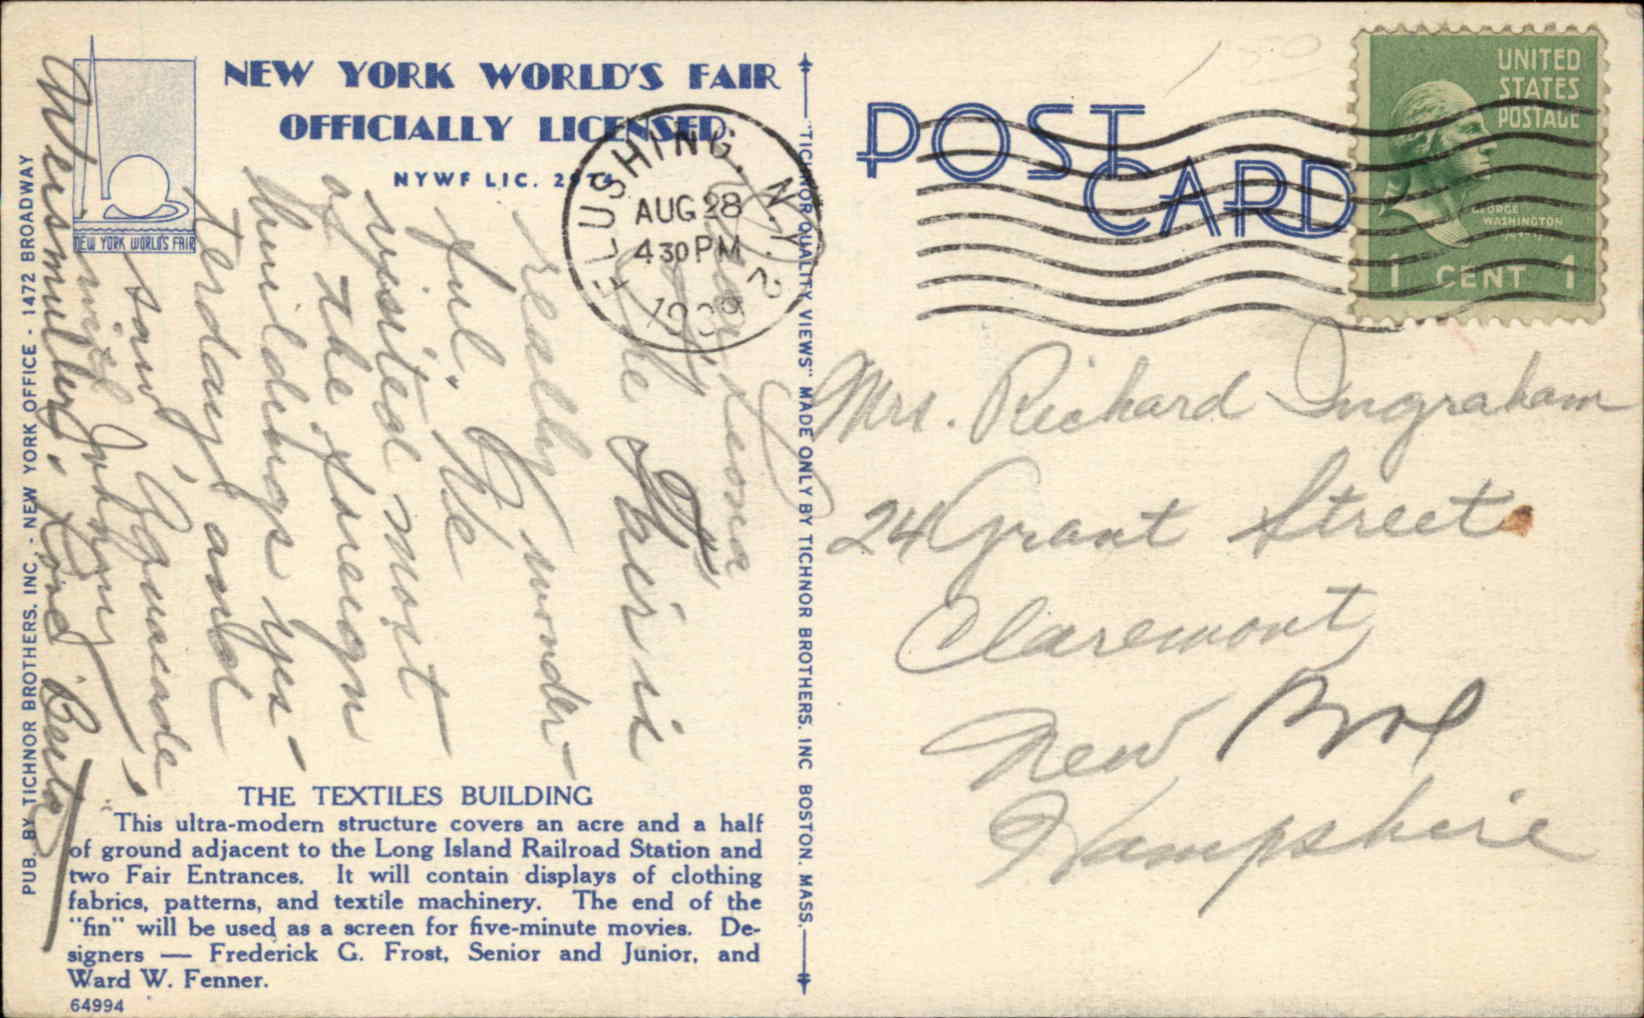 NEW YORK WORLD'S FAIR
OFFICIALLY LICENSED
NYWF LIC.
NEW YORK WORLD'S FAIR
PUB. BY TICHNOR BROTHERS, INC. - NEW YORK OFFICE - 1472 BROADWAY
Dear Leona
The Fair is
really wonder-
ful. We
visited most
of the foreign
buildings yes-
terday and
saw Aquacade
with Johnny
Weismuller. Love Berta
THE TEXTILES BUILDING
This ultra-modern structure covers an acre and a half
of ground adjacent to the Long Island Railroad Station and
two Fair Entrances. It will contain displays of clothing
fabrics, patterns, and textile machinery. The end of the
"fin" will be used as a screen for five-minute movies. De-
signers — Frederick G. Frost, Senior and Junior, and
Ward W. Fenner.
64994
"TICHNOR QUALITY VIEWS" MADE ONLY BY TICHNOR BROTHERS, INC BOSTON, MASS.
FLUSHING, N.Y. 2
AUG 28
430 PM
1939
POST
CARD
UNITED
STATES
POSTAGE
GEORGE
WASHINGTON
1 CENT 1
Mrs. Richard Ingraham
24 Grant Street
Claremont
New
Hampshire